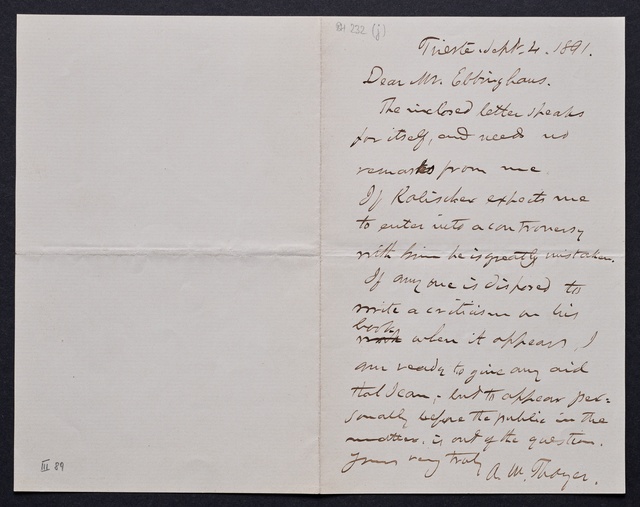 BH 232 (j)
Trieste Sept. 4. 1891.
Dear Mr. Ebbinghaus.
The inclosed letter speaks
for itself, and needs no
remarks from me.
If Kalischer expects me
to enter into a controversy
with him he is greatly mistaken.
If any one is disposed to
write a criticism on his
book
work when it appears, I
am ready to give any aid
that I can, - but to appear per=
sonally before the public in the
matter, is out of the question.
Yours very truly
A. W. Thayer.
III 89